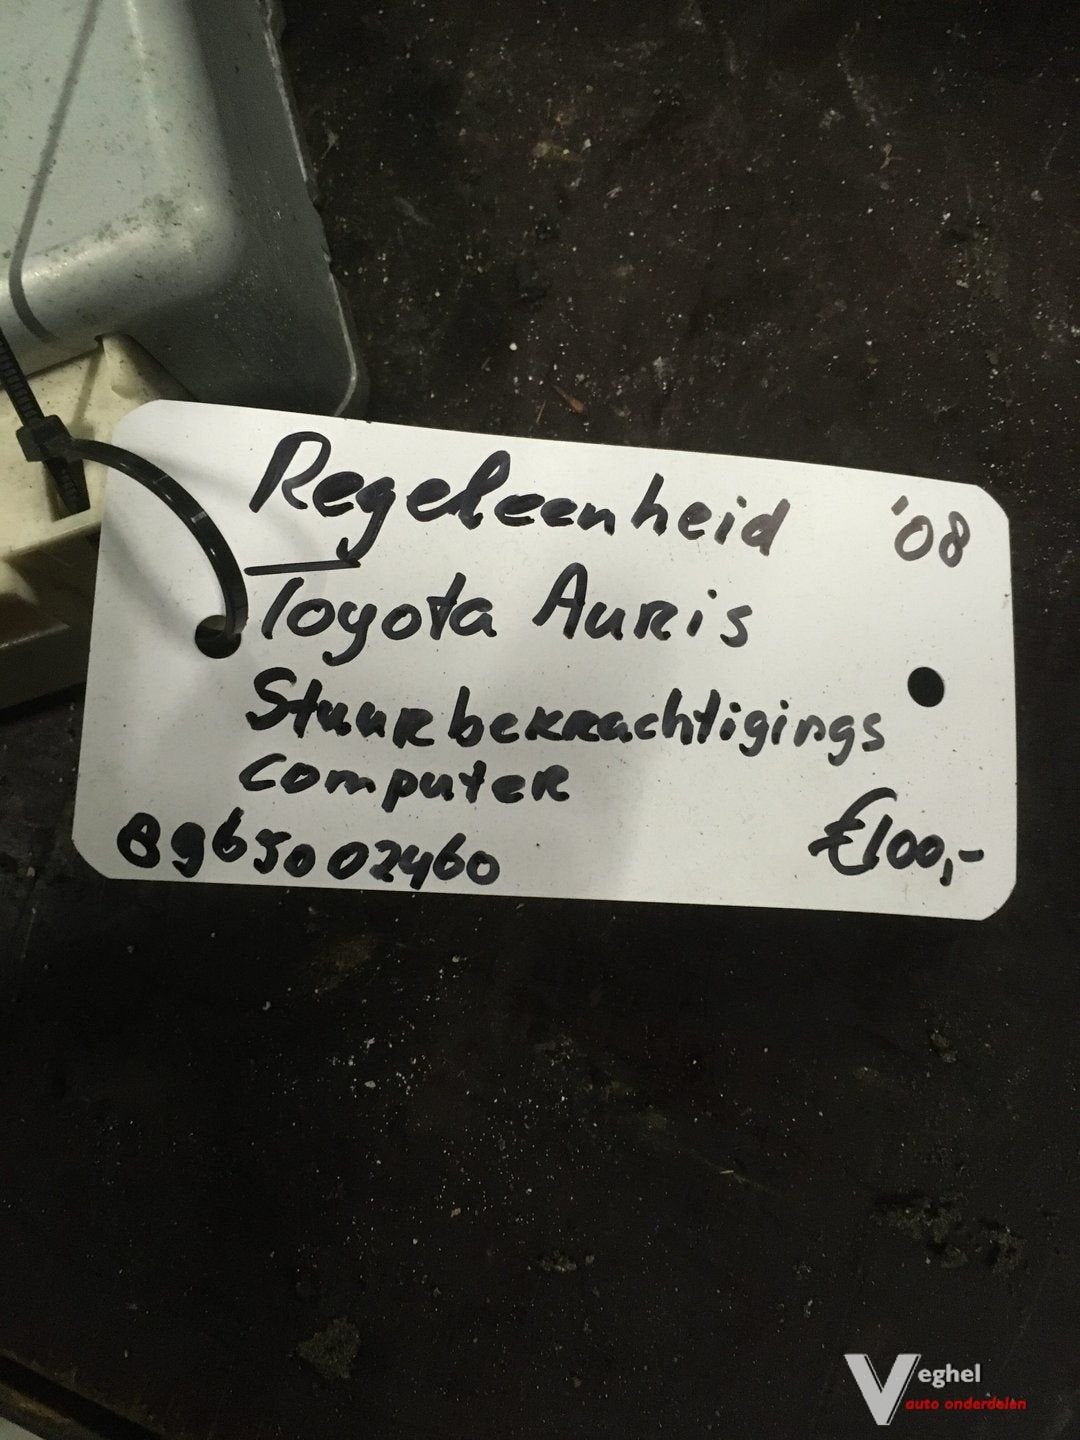 Regeleenheid '08
Toyota Auris
Stuurbekrachtigings
computer
8965002460 €100,-
Veghel
auto onderdelen